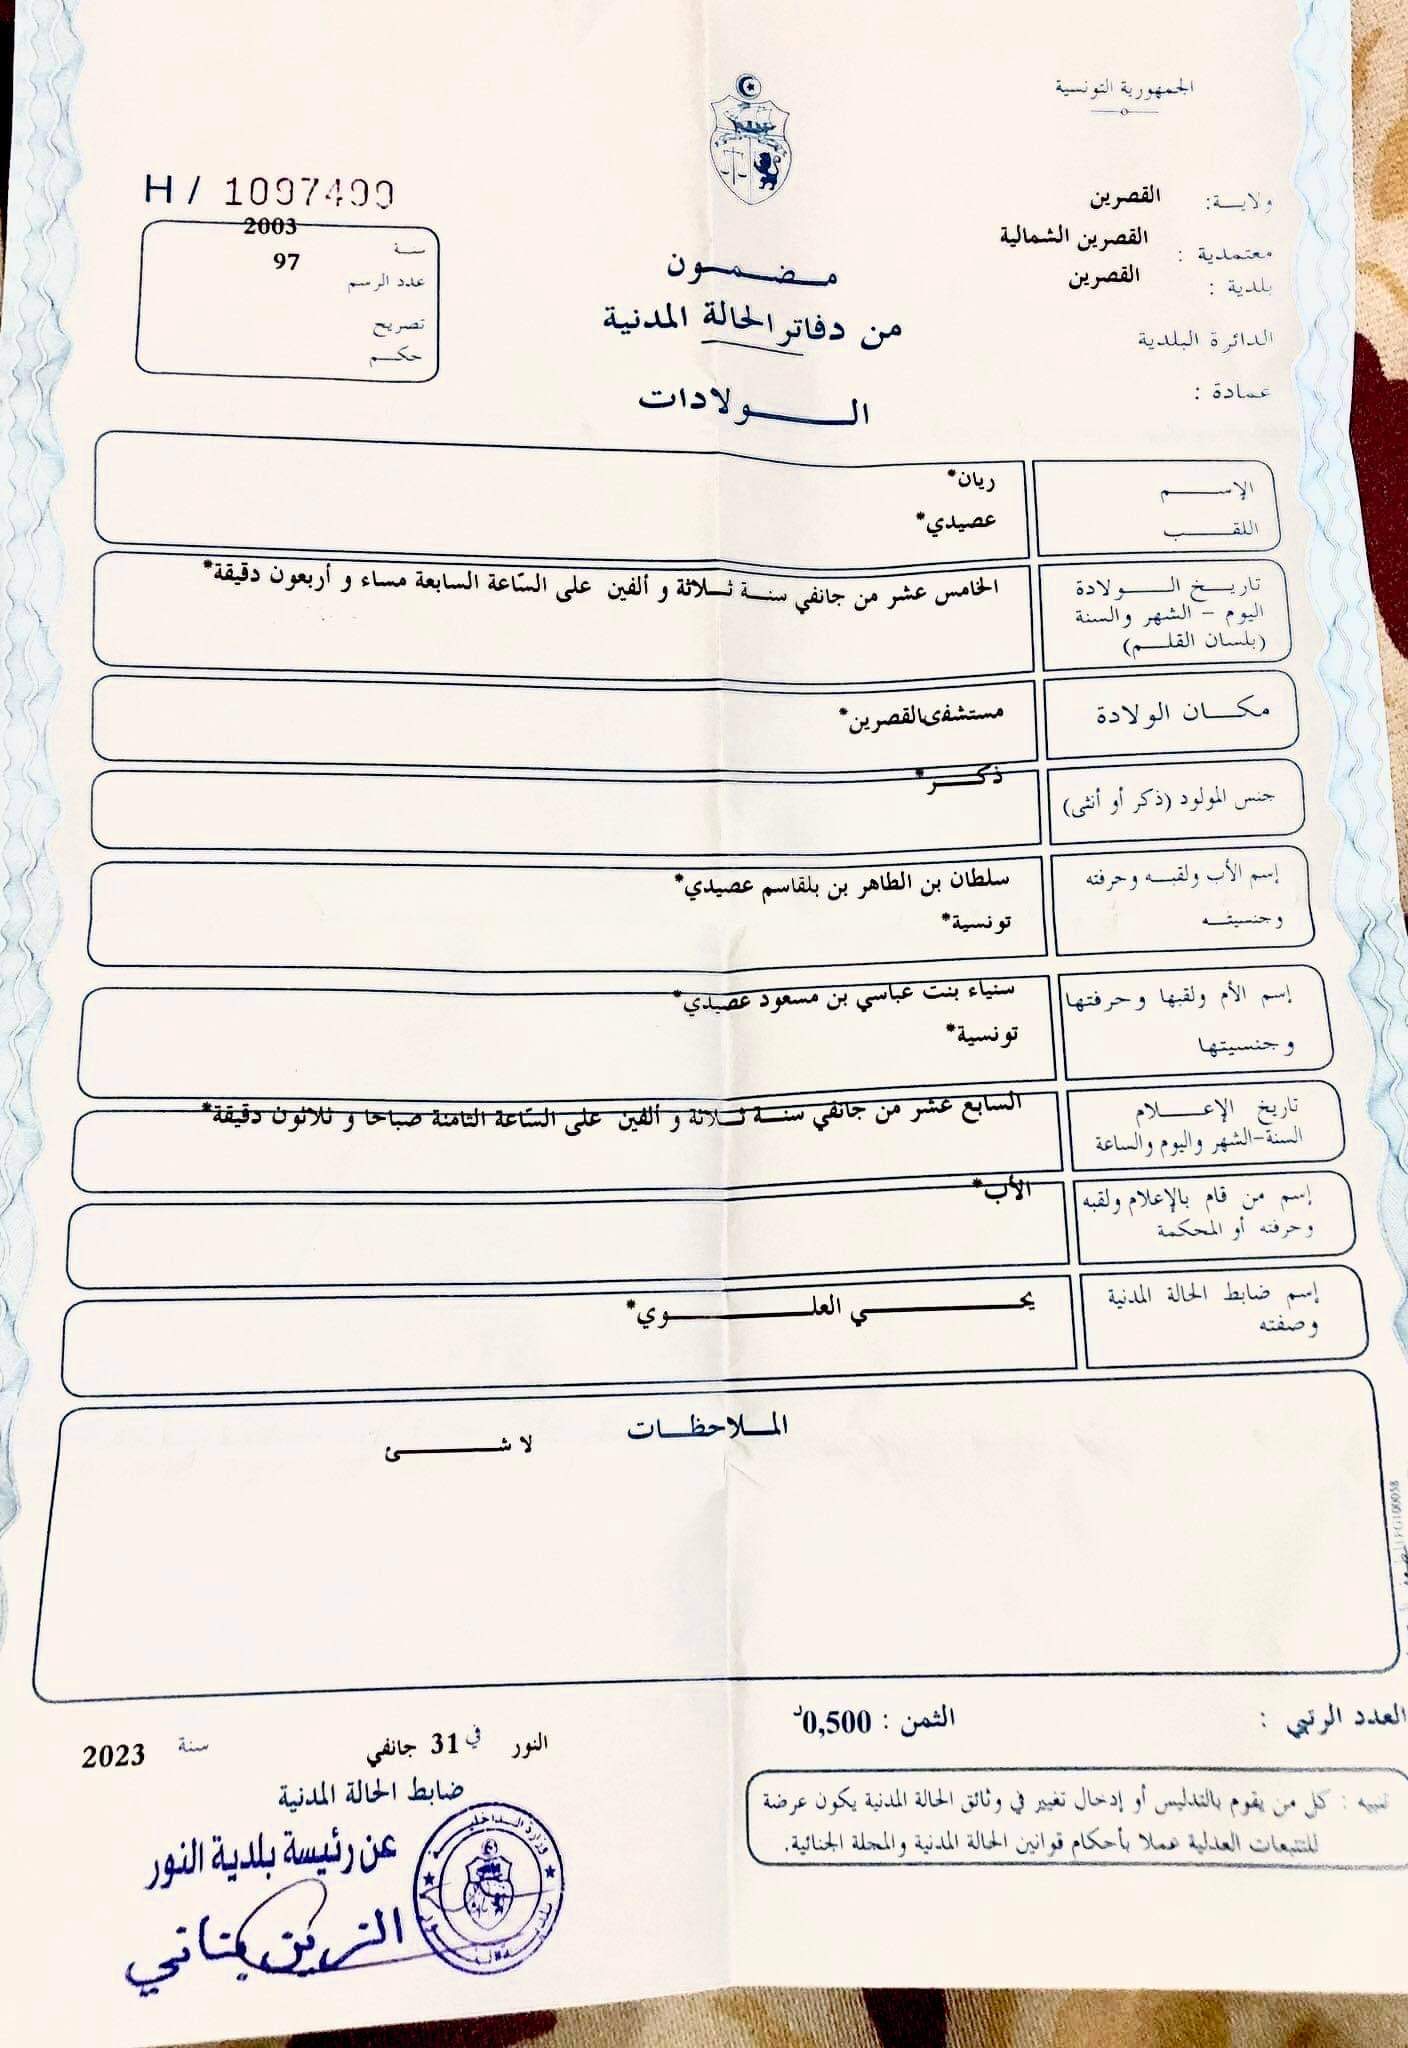 الجمهورية التونسية
H / 1097499
ولاية: القصرين
معتمدية : القصرين الشمالية
بلدية : القصرين
الدائرة البلدية
عمادة :
سنة 2003
عدد الرسم 97
تصريح
حكم
مضمون
من دفاتر الحالة المدنية
الولادات
الإسم ريان*
اللقب عصيدي*
تاريخ الولادة
اليوم - الشهر والسنة
(بلسان القلم)
الخامس عشر من جانفي سنة ثلاثة و ألفين على السّاعة السابعة مساء و أربعون دقيقة*
مكان الولادة مستشفى القصرين*
جنس المولود (ذكر أو أنثى) ذكر*
إسم الأب ولقبه وحرفته سلطان بن الطاهر بن بلقاسم عصيدي*
وجنسيته تونسية*
إسم الأم ولقبها وحرفتها سنياء بنت عباسي بن مسعود عصيدي*
وجنسيتها تونسية*
تاريخ الإعلام
السنة-الشهر واليوم والساعة
السابع عشر من جانفي سنة ثلاثة و ألفين على السّاعة الثامنة صباحا و ثلاثون دقيقة*
إسم من قام بالإعلام ولقبه
وحرفته أو المحكمة
الأب*
إسم ضابط الحالة المدنية
وصفته
يحي العلوي*
الملاحظات
لا شئ
العدد الرتبي :
الثمن : 0,500د
تنبيه : كل من يقوم بالتدليس أو إدخال تغيير في وثائق الحالة المدنية يكون عرضة
للتتبعات العدلية عملا بأحكام قوانين الحالة المدنية والمجلة الجنائية.
النور في 31 جانفي سنة 2023
ضابط الحالة المدنية
عن رئيسة بلدية النور
وزارة الداخلية